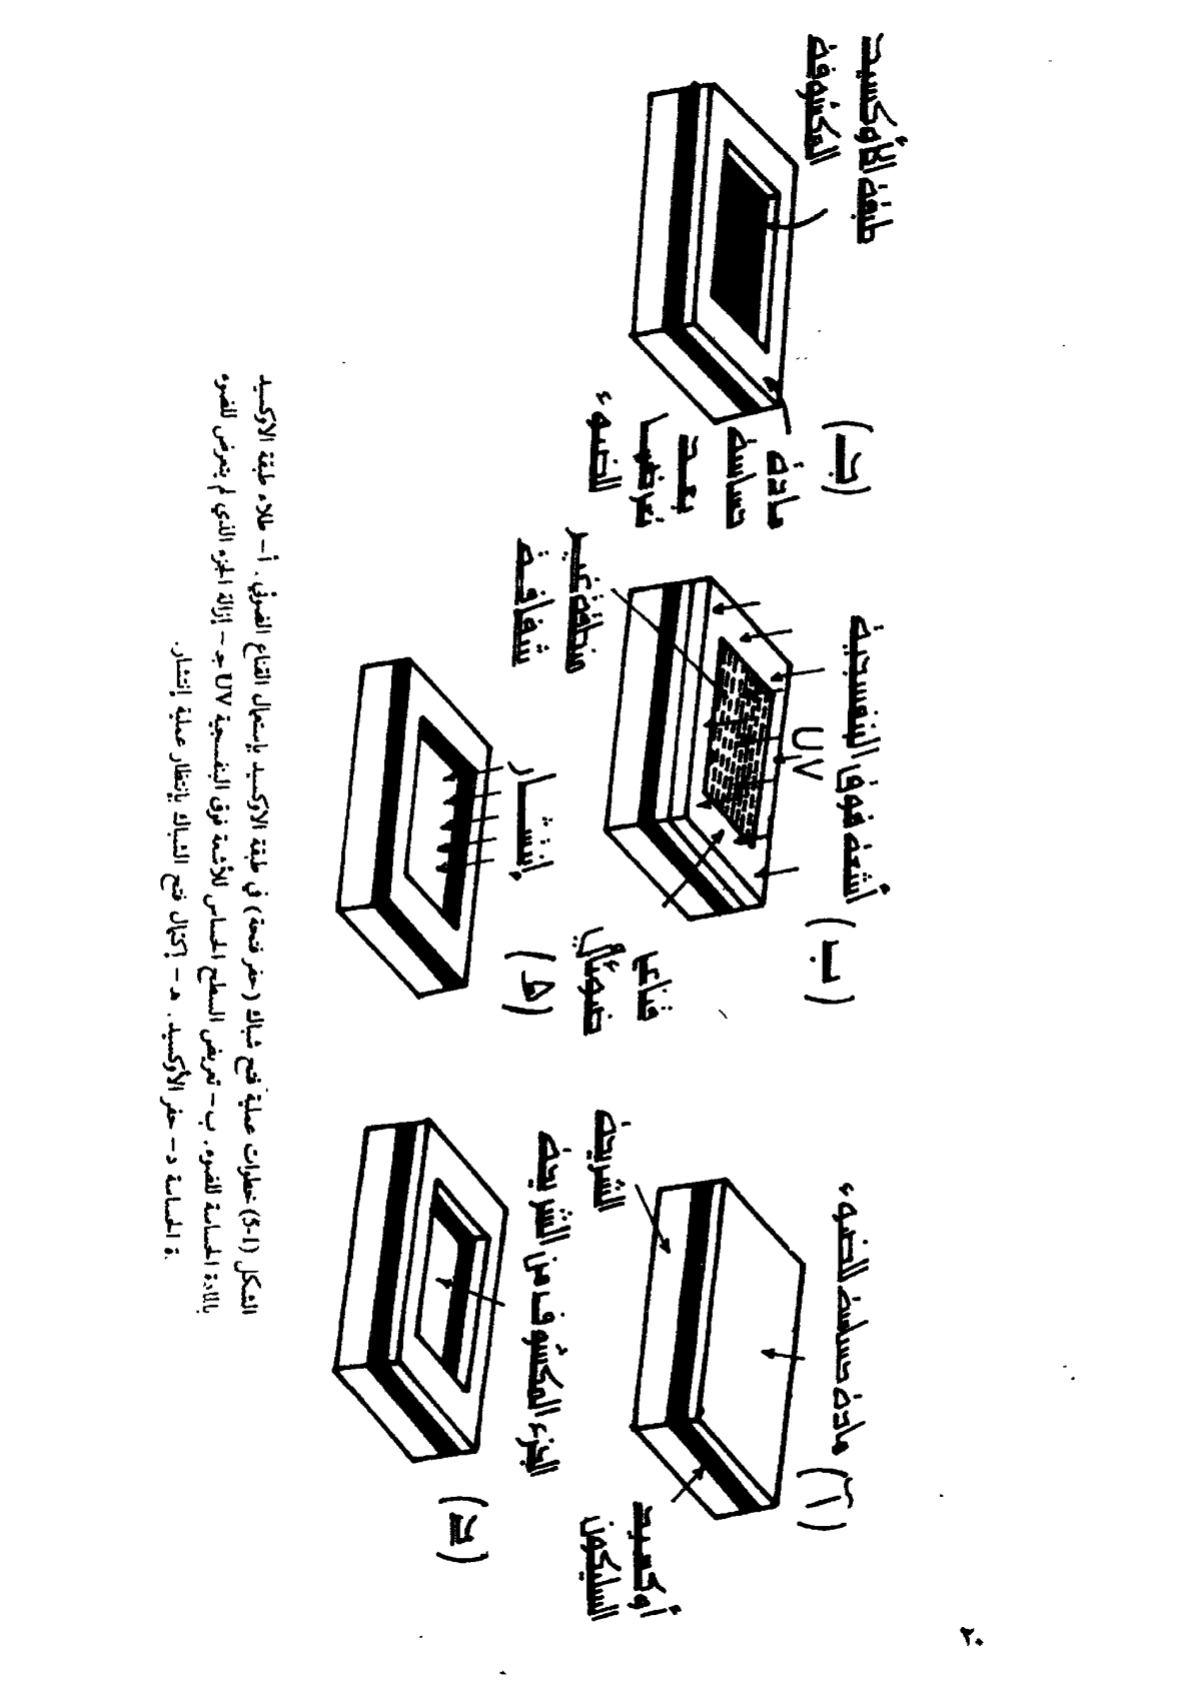 ٢٠
(أ)
مادة حساسة للضوء
الشريحة
أوكسيد
السليكون
(ب)
أشعة فوق البنفسجية
UV
قناع
ضوئي
منطقة غير
شفافة
(جـ)
طبقة الأوكسيد
المكشوفة
مادة
حساسة
بعد
تعرضها
للضوء
(د)
الجزء المكشوف من الشريحة
(هـ)
أنتشار
الشكل (1-5) خطوات عملية فتح شباك (حفر فتحة) في طبقة الاوكسيد بإستعمال القناع الضوئي. أ- طلاء طبقة الاوكسيد
بالمادة الحساسة للضوء. ب- تعريض السطح الحساس للأشعة فوق البنفسجية UV جـ- إزالة الجزء الذي لم يتعرض للضوء
ة الحساسة د- حفر الأوكسيد. هـ - إكتمال فتح الشباك بإنتظار عملية إنتشار.